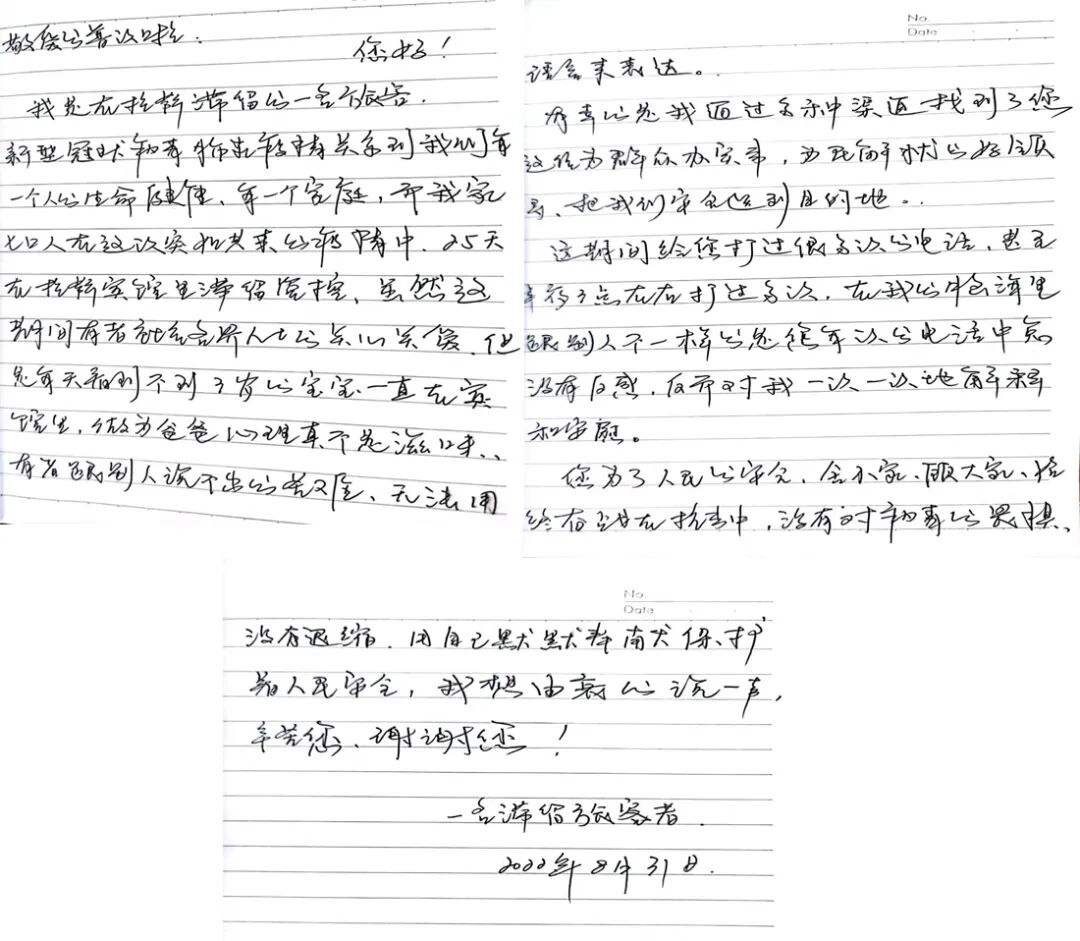 敬爱的普次啦:
您好!
我是在拉萨滞留的一名旅客.
新型冠状病毒肺炎疫情关系到我们每
一个人的生命健康、每一个家庭,而我家
七口人在这次突如其来的疫情中.25天
在拉萨宾馆里滞留管控,虽然这
期间有着社会各界人士的关心关爱,但
是每天看到不到3岁的宝宝一直在宾
馆里,做为爸爸心理真不是滋味、
有着跟别人说不出的苦又,无法用
No.
Date
语言来表达。
有幸的是我通过多种渠道找到了您
这位为群众办实事,为民解忧的好领
导、把我们安全送到目的地。
这期间给您打过很多次的电话,甚至
半夜3点左右打过多次,在我的脑海里
跟别人不一样的是很每次的电话中您
没有反感,反而对我一次一次地解释
和安慰。
您为了人民的安全,舍小家、顾大家、始
终在战在抗击中,没有对病毒的畏惧、
No.
Date
没有退缩.用自己默默奉献保护
着人民安全,我想由衷的说一声,
辛苦您、谢谢您!
一名滞留旅客者.
2022年8月31日.